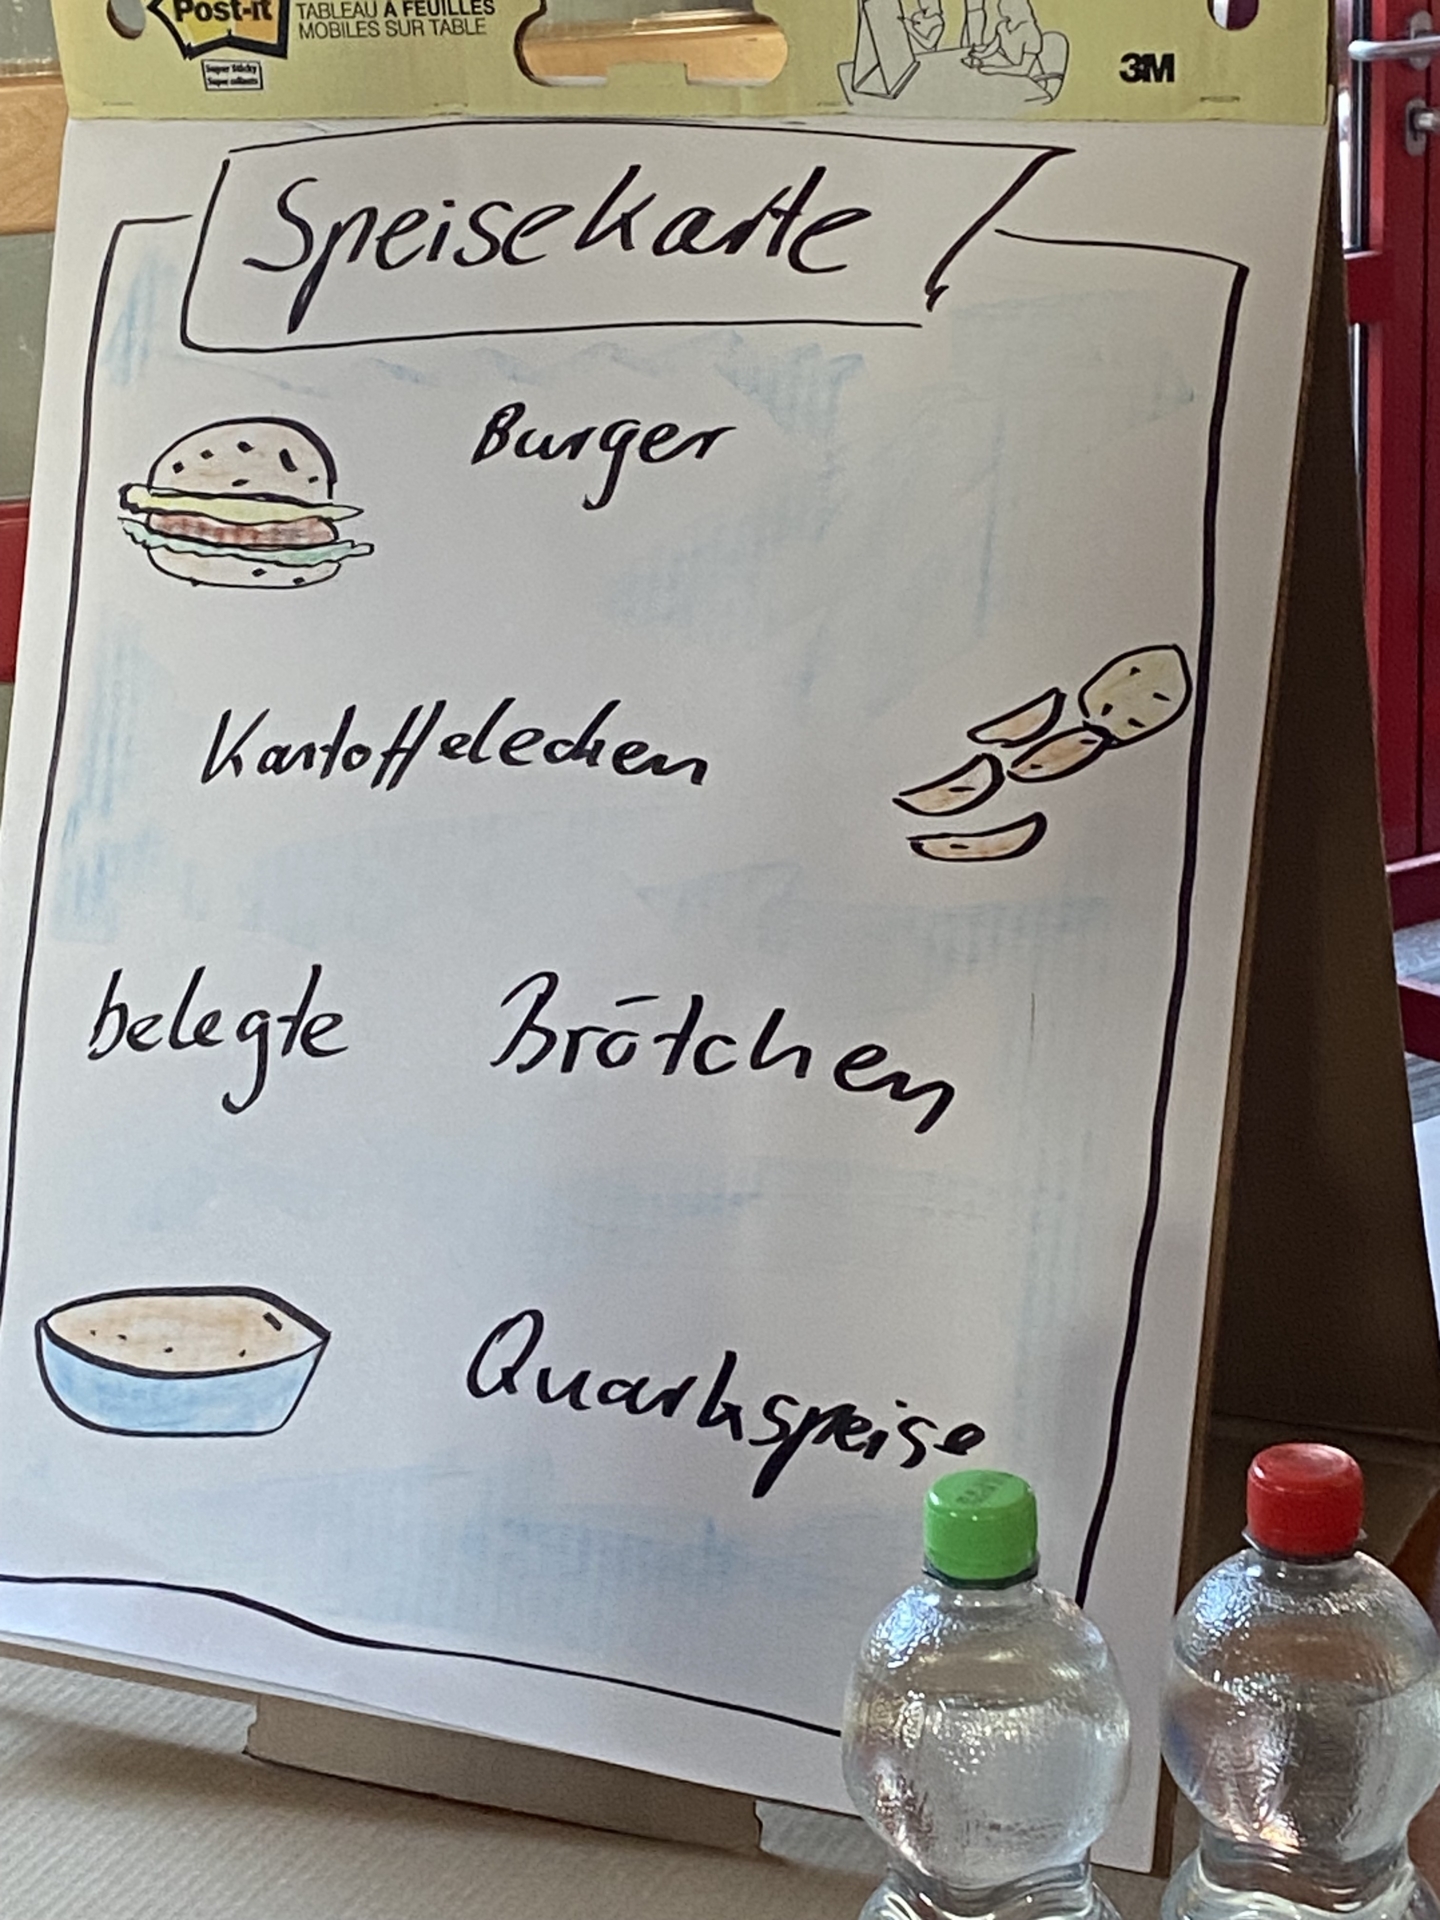 Post-it
TABLEAU A FEUILLES
MOBILES SUR TABLE
Super Sticky
Super collants
3M
Speisekarte
Burger
Kartoffelecken
belegte Brötchen
Quarkspeise